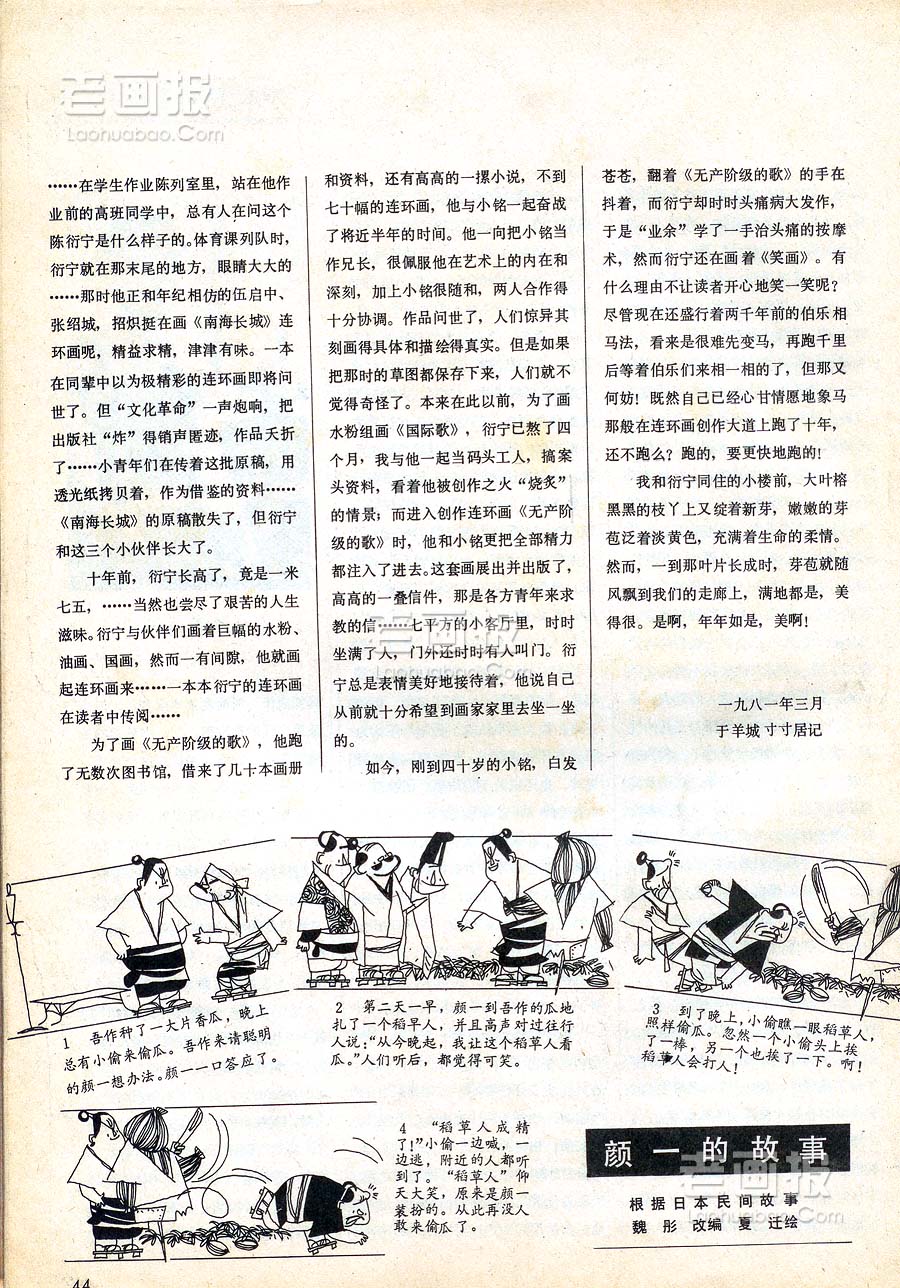 老画报
Laohuabao.Com
……在学生作业陈列室里，站在他作
业前的高班同学中，总有人在问这个
陈衍宁是什么样子的。体育课列队时，
衍宁就在那末尾的地方，眼睛大大的
……那时他正和年纪相仿的伍启中、
张绍城，招炽挺在画《南海长城》连
环画呢，精益求精，津津有味。一本
在同辈中以为极精彩的连环画即将问
世了。但“文化革命”一声炮响，把
出版社“炸”得销声匿迹，作品夭折
了……小青年们在传着这批原稿，用
透光纸拷贝着，作为借鉴的资料……
《南海长城》的原稿散失了，但衍宁
和这三个小伙伴长大了。
十年前，衍宁长高了，竟是一米
七五，……当然也尝尽了艰苦的人生
滋味。衍宁与伙伴们画着巨幅的水粉、
油画、国画，然而一有间隙，他就画
起连环画来……一本本衍宁的连环画
在读者中传阅……
为了画《无产阶级的歌》，他跑
了无数次图书馆，借来了几十本画册
和资料，还有高高的一摞小说，不到
七十幅的连环画，他与小铭一起奋战
了将近半年的时间。他一向把小铭当
作兄长，很佩服他在艺术上的内在和
深刻，加上小铭很随和，两人合作得
十分协调。作品问世了，人们惊异其
刻画得具体和描绘得真实。但是如果
把那时的草图都保存下来，人们就不
觉得奇怪了。本来在此以前，为了画
水粉组画《国际歌》，衍宁已熬了四
个月，我与他一起当码头工人，搞案
头资料，看着他被创作之火“烧炙”
的情景；而进入创作连环画《无产阶
级的歌》时，他和小铭更把全部精力
都注入了进去。这套画展出并出版了，
高高的一叠信件，那是各方青年来求
教的信……七平方的小客厅里，时时
坐满了人，门外还时时有人叫门。衍
宁总是表情美好地接待着，他说自己
从前就十分希望到画家家里去坐一坐
的。
如今，刚到四十岁的小铭，白发
苍苍，翻着《无产阶级的歌》的手在
抖着，而衍宁却时时头痛病大发作，
于是“业余”学了一手治头痛的按摩
术，然而衍宁还在画着《笑画》。有
什么理由不让读者开心地笑一笑呢？
尽管现在还盛行着两千年前的伯乐相
马法，看来是很难先变马，再跑千里
后等着伯乐们来相一相的了，但那又
何妨！既然自己已经心甘情愿地象马
那般在连环画创作大道上跑了十年，
还不跑么？跑的，要更快地跑的！
我和衍宁同住的小楼前，大叶榕
黑黑的枝丫上又绽着新芽，嫩嫩的芽
苞泛着淡黄色，充满着生命的柔情。
然而，一到那叶片长成时，芽苞就随
风飘到我们的走廊上，满地都是，美
得很。是啊，年年如是，美啊！
一九八一年三月
于羊城 寸寸居记
老画报
Laohuabao.Com
1 吾作种了一大片香瓜，晚上
总有小偷来偷瓜。吾作来请聪明
的颜一想办法。颜一一口答应了。
2 第二天一早，颜一到吾作的瓜地
扎了一个稻草人，并且高声对过往行
人说：“从今晚起，我让这个稻草人看
瓜。”人们听后，都觉得可笑。
3 到了晚上，小偷瞧一眼稻草人，
照样偷瓜。忽然一个小偷头上挨
了一棒，另一个也挨了一下。啊！
稻草人会打人！
4 “稻草人成精
了！”小偷一边喊，一
边逃，附近的人都听
到了。“稻草人”仰
天大笑，原来是颜一
装扮的。从此再没人
敢来偷瓜了。
颜一的故事
根据日本民间故事
魏彤 改编 夏迁绘
老画报
Laohuabao.Com
44